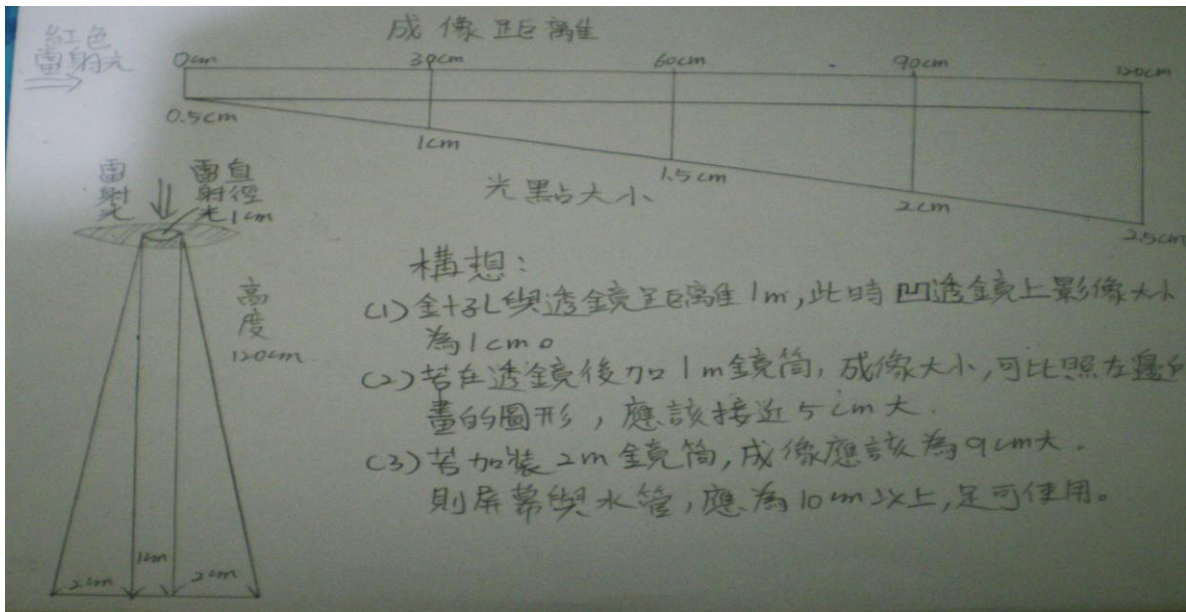 成像距離
紅色
雷射光
0cm
30cm
60cm
90cm
120cm
0.5cm
1cm
1.5cm
2cm
2.5cm
光點大小
雷射光
雷射光
直徑
1cm
高度
120cm
2cm
1cm
2cm
構想：
(1)針孔與透鏡距離1m,此時凹透鏡上影像大小
為1cm。
(2)若在透鏡後加1m鏡筒,成像大小,可比照左邊所
畫的圖形,應該接近5cm大.
(3)若加裝2m鏡筒,成像應該為9cm大.
則屏幕與水管,應為10cm以上,足可使用。